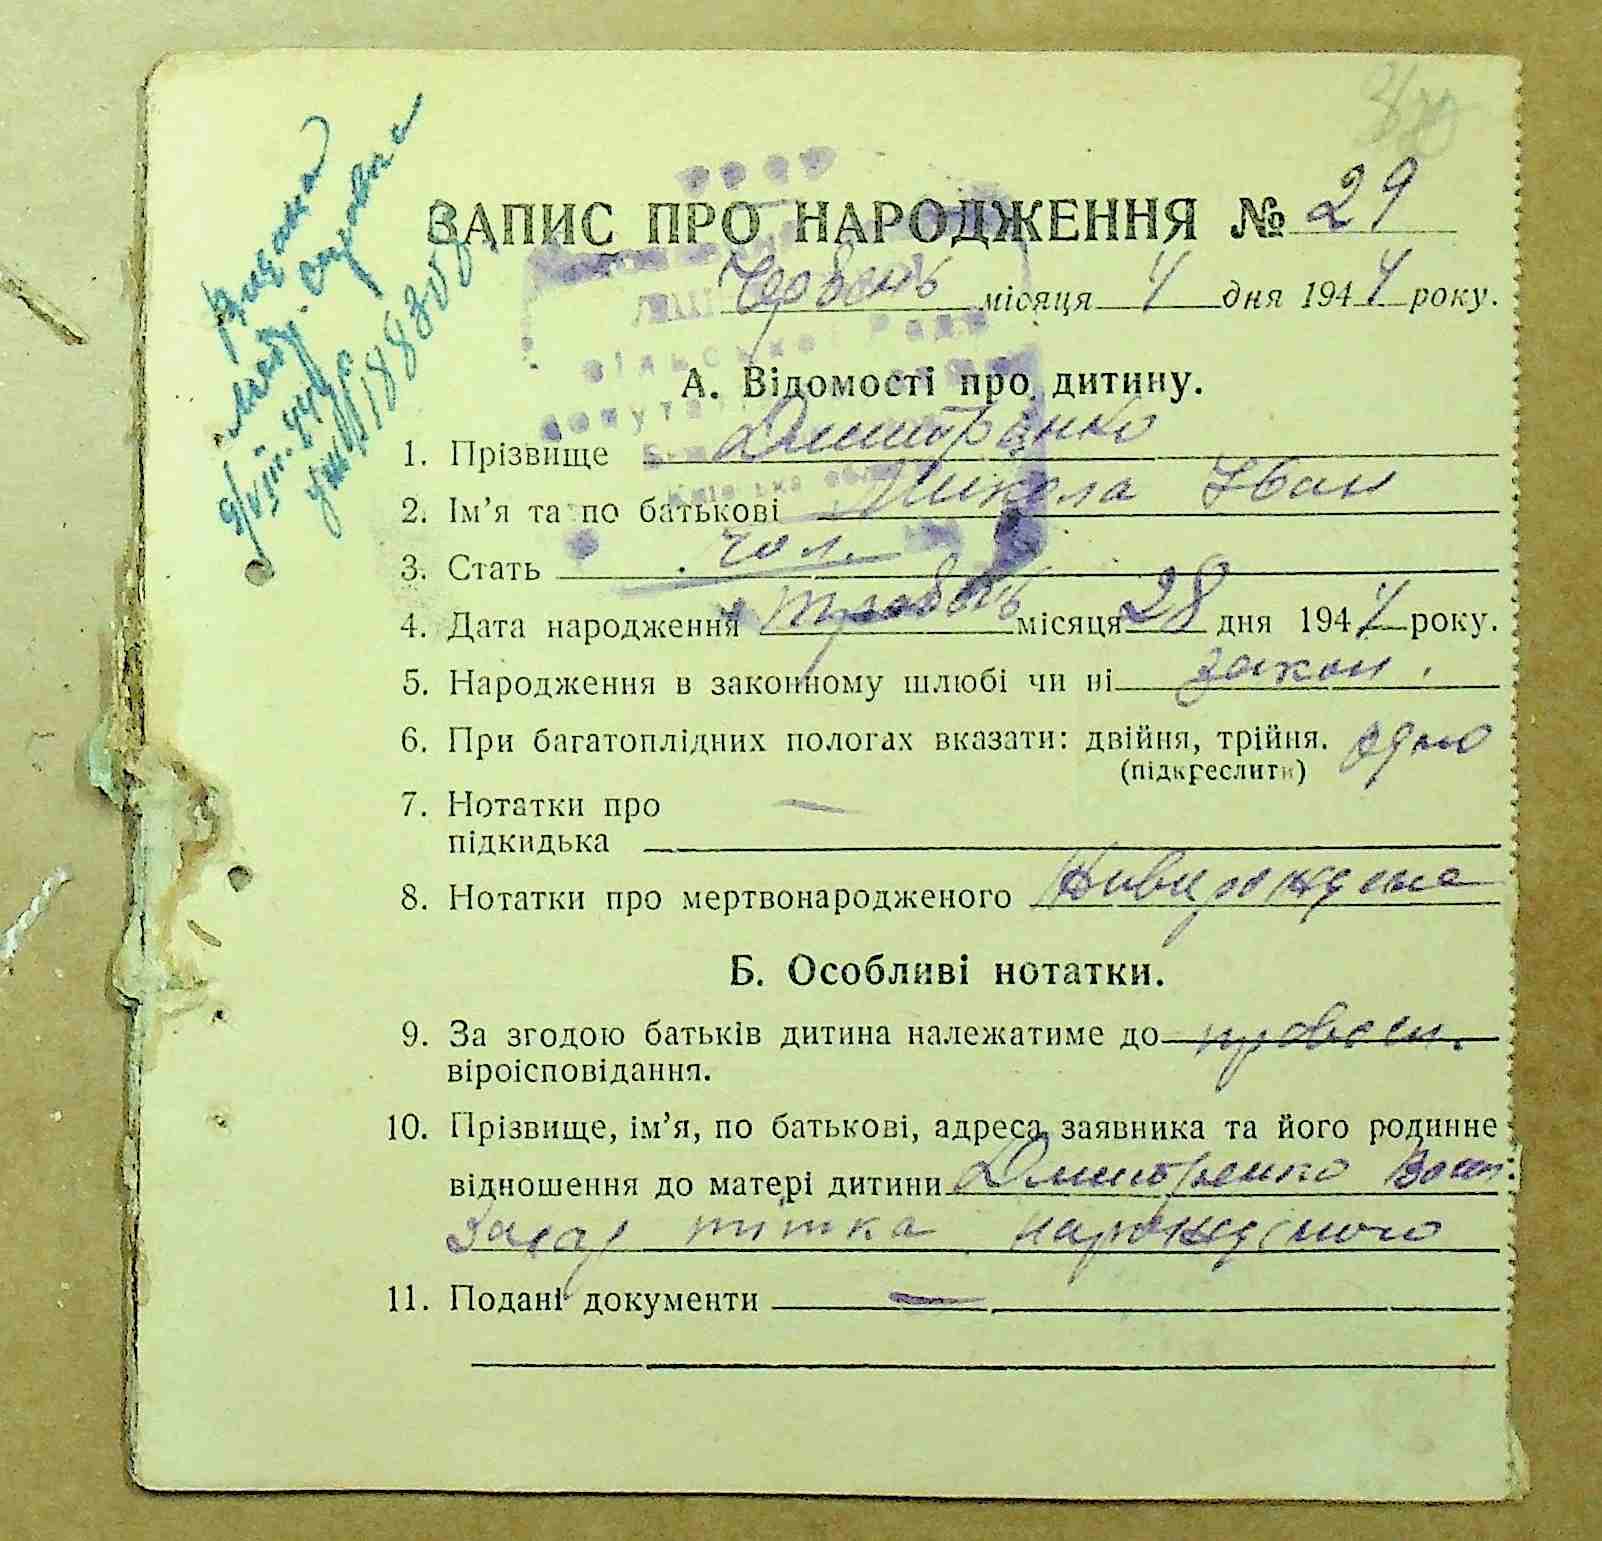 ЗАПИС ПРО НАРОДЖЕННЯ № 29
Червень місяця 4 дня 1944 року.
А. Відомості про дитину.
1. Прізвище Дмитренко
2. Ім’я та по батькові Микола Іван
3. Стать чол.
4. Дата народження травень місяця 28 дня 1944 року.
5. Народження в законному шлюбі чи ні закон.
6. При багатоплідних пологах вказати: двійня, трійня. одно
(підкреслити)
7. Нотатки про —
підкидька
8. Нотатки про мертвонародженого
Б. Особливі нотатки.
9. За згодою батьків дитина належатиме до правосл.
віроісповідання.
10. Прізвище, ім’я, по батькові, адреса заявника та його родинне
відношення до матері дитини Дмитренко
Захар тітка
11. Подані документи —